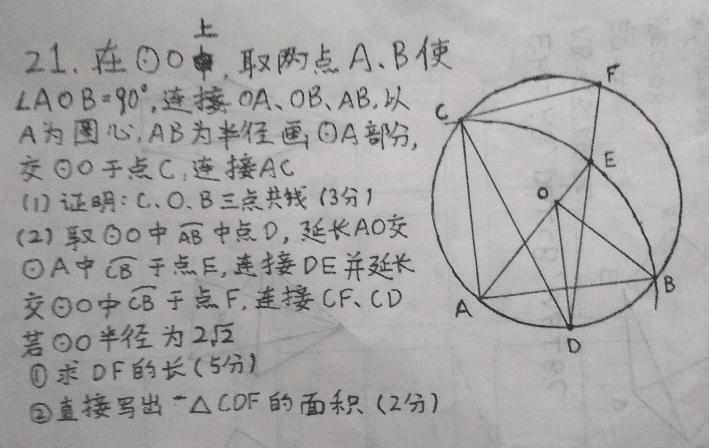 21. 在⊙O上, 取两点A、B使
∠AOB=90°,连接OA、OB、AB,以
A为圆心,AB为半径画⊙A部分,
交⊙O于点C,连接AC
(1) 证明:C、O、B三点共线 (3分)
(2) 取⊙O中AB中点D, 延长AO交
⊙A中CB于点E, 连接DE并延长
交⊙O中CB于点F, 连接CF、CD
若⊙O半径为2√2
① 求DF的长(5分)
②直接写出 △CDF的面积 (2分)
C
F
E
O
A
B
D